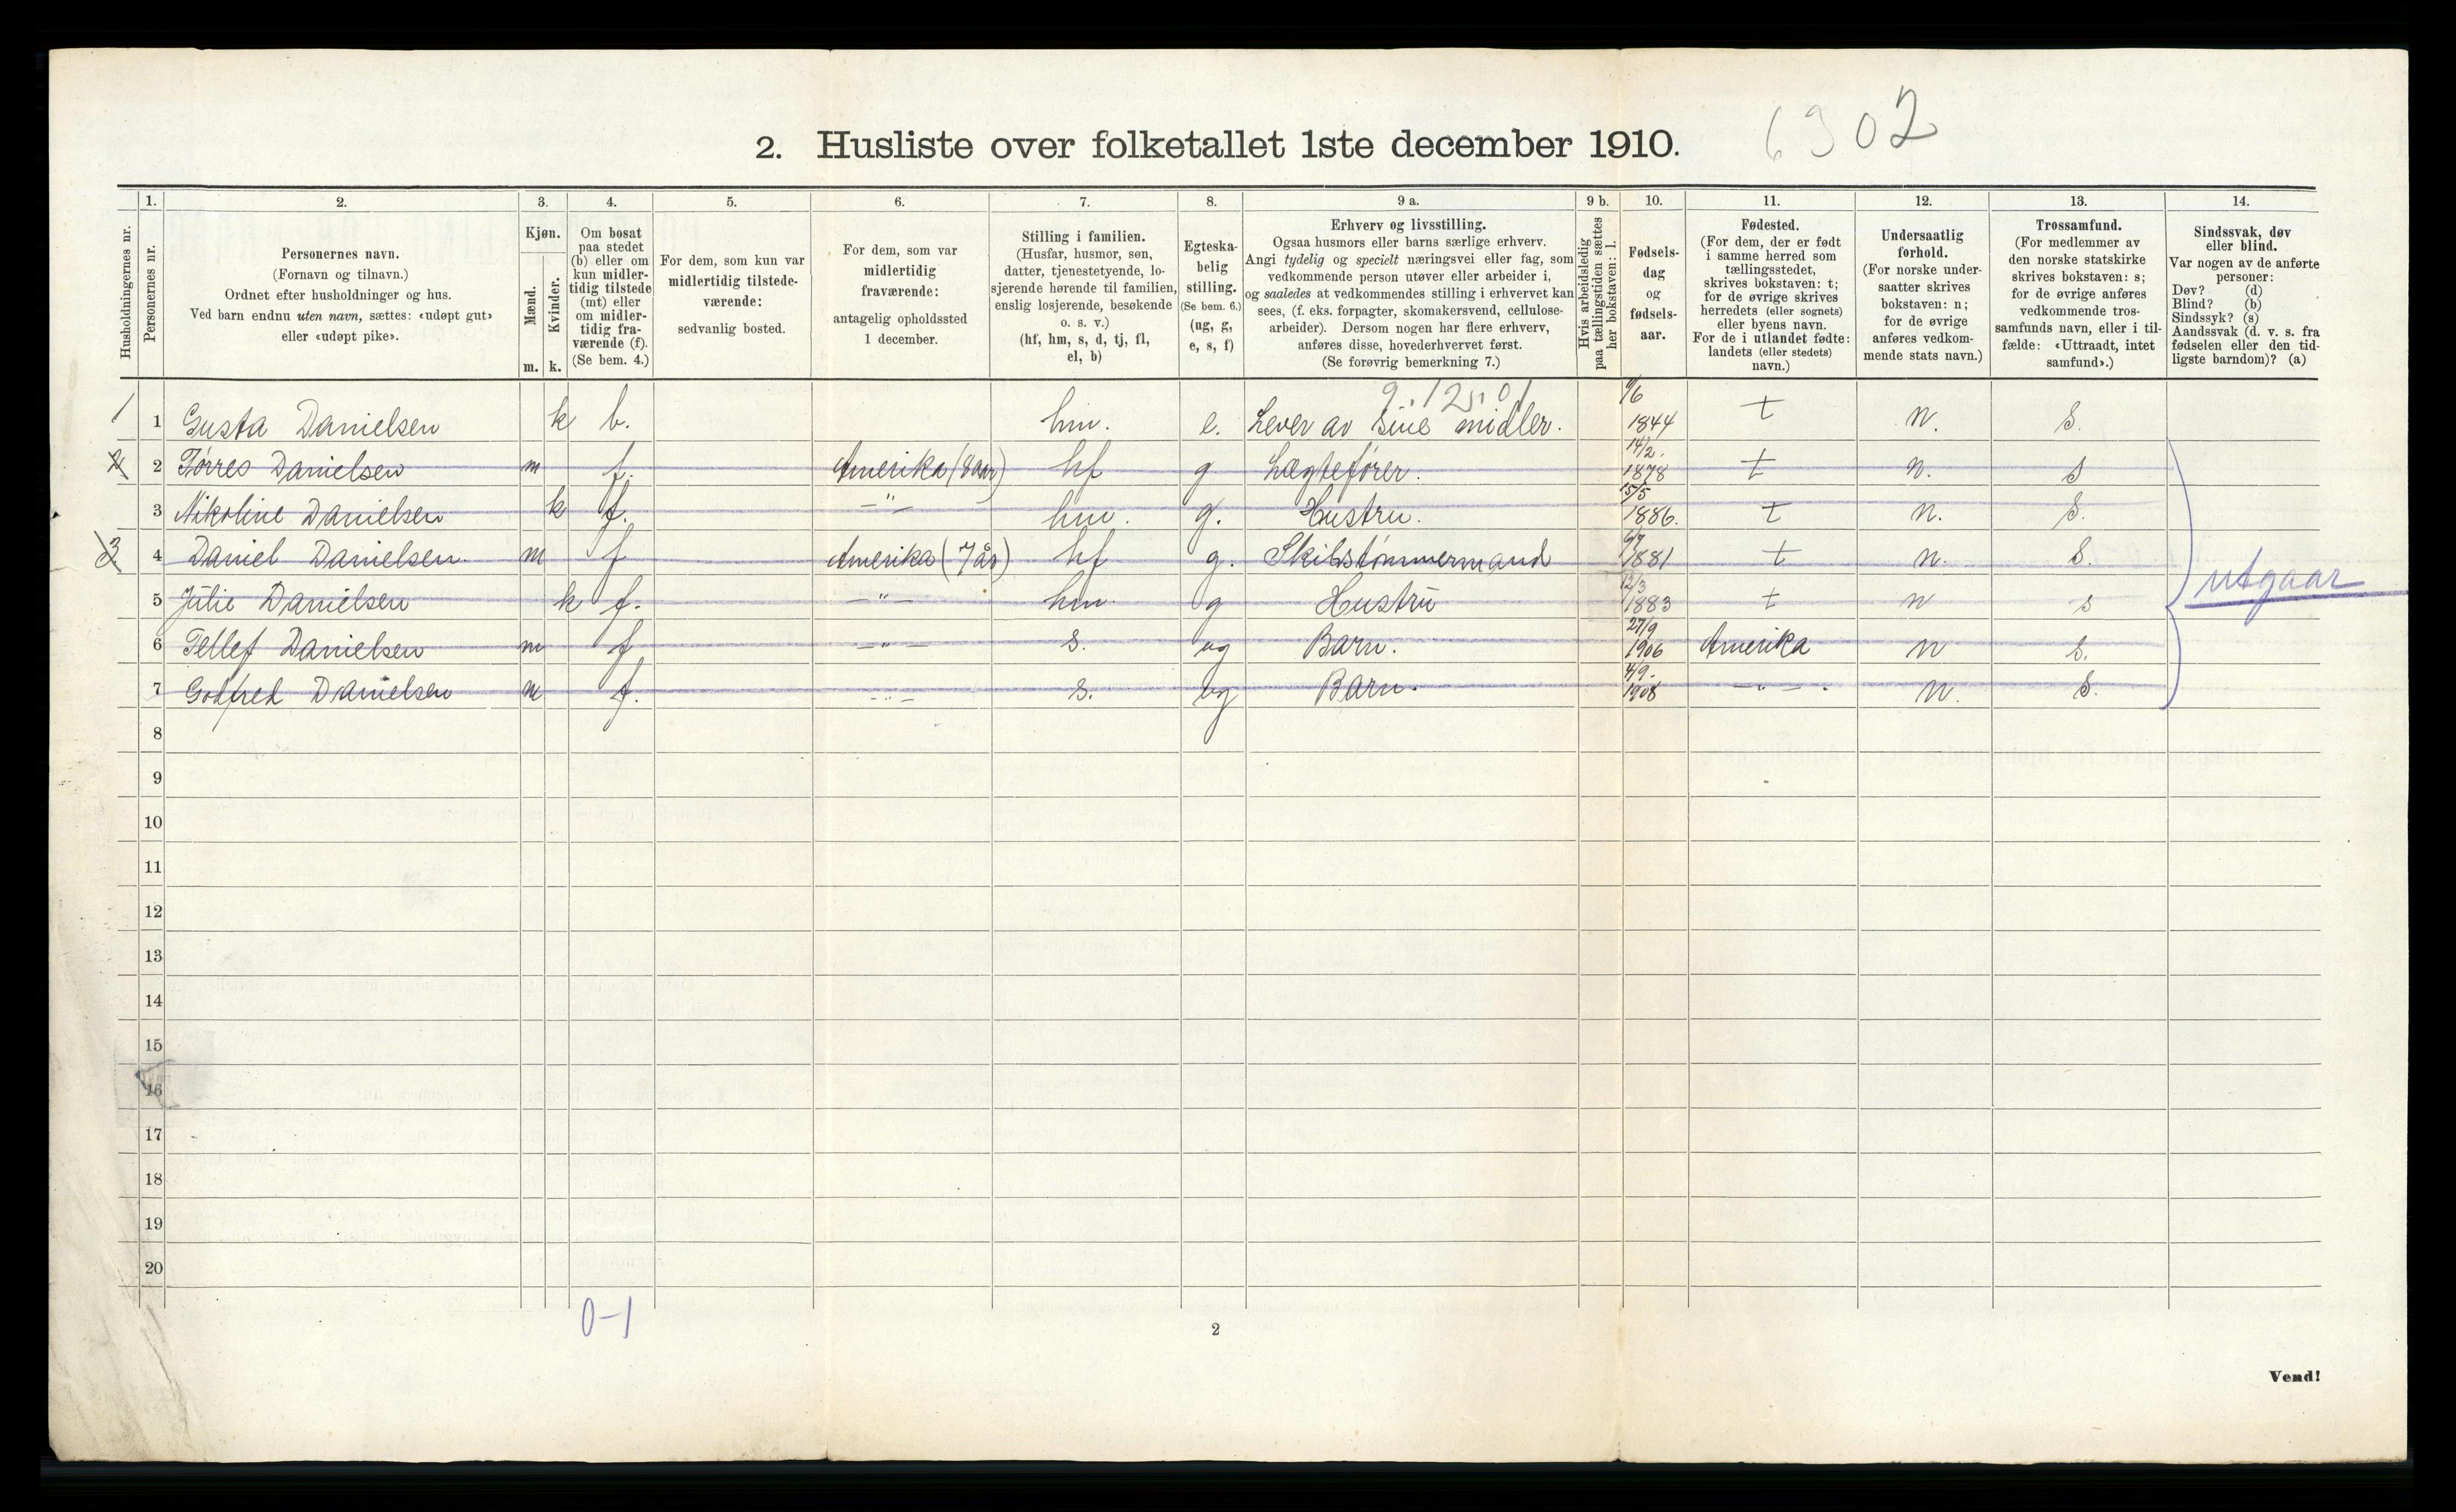 2. Husliste over folketallet 1ste december 1910.
6302
1. 2. 3. 4. 5. 6. 7. 8. 9 a. 9 b. 10. 11. 12. 13. 14.
Husholdningernes nr.
Personernes nr.
Personernes navn.
(Fornavn og tilnavn.)
Ordnet efter husholdninger og hus.
Ved barn endnu uten navn, sættes: «udøpt gut»
eller «udøpt pike».
Kjøn.
Mænd.
Kvinder.
m. k.
Om bosat
paa stedet
(b) eller om
kun midler-
tidig tilstede
(mt) eller
om midler-
tidig fra-
værende (f).
(Se bem. 4.)
For dem, som kun var
midlertidig tilstede-
værende:
sedvanlig bosted.
For dem, som var
midlertidig
fraværende:
antagelig opholdssted
1 december.
Stilling i familien.
(Husfar, husmor, søn,
datter, tjenestetyende, lo-
sjerende hørende til familien,
enslig losjerende, besøkende
o. s. v.)
(hf, hm, s, d, tj, fl,
el, b)
Egteska-
belig
stilling.
(Se bem. 6.)
(ug, g,
e, s, f)
Erhverv og livsstilling.
Ogsaa husmors eller barns særlige erhverv.
Angi tydelig og specielt næringsvei eller fag, som
vedkommende person utøver eller arbeider i,
og saaledes at vedkommendes stilling i erhvervet kan
sees, (f. eks. forpagter, skomakersvend, cellulose-
arbeider). Dersom nogen har flere erhverv,
anføres disse, hovederhvervet først.
(Se forøvrig bemerkning 7.)
Hvis arbeidsledig
paa tællingstiden sættes
her bokstaven: l.
Fødsels-
dag
og
fødsels-
aar.
Fødested.
(For dem, der er født
i samme herred som
tællingsstedet,
skrives bokstaven: t;
for de øvrige skrives
herredets (eller sognets)
eller byens navn.
For de i utlandet fødte:
landets (eller stedets)
navn.)
Undersaatlig
forhold.
(For norske under-
saatter skrives
bokstaven: n;
for de øvrige
anføres vedkom-
mende stats navn.)
Trossamfund.
(For medlemmer av
den norske statskirke
skrives bokstaven: s;
for de øvrige anføres
vedkommende tros-
samfunds navn, eller i til-
fælde: «Uttraadt, intet
samfund».)
Sindssvak, døv
eller blind.
Var nogen av de anførte
personer:
Døv? (d)
Blind? (b)
Sindssyk? (s)
Aandssvak (d. v. s. fra
fødselen eller den tid-
ligste barndom)? (a)
1 1 Gusta Danielsen k b. hm. e. Lever av sine midler. 1844 t n. s.
2 2 Tørres Danielsen m f. Amerika (8 aar) hf g Lægtefører. 14/2. 1878 t n. s
3 Nikoline Danielsen k f. —"— hm. g. Hustru. 15/5 1886. t n. s.
3 4 Daniel Danielsen. m f Amerika (7 år) hf g. Skibstømmermand 1881 t n. s.
5 Julie Danielsen k f. —"— hm. g Hustru 12/3 1883 t n s
6 Tellef Danielsen m f —"— s. ug Barn. 27/9 1906 Amerika n s.
7 Godfred Danielsen m f. —"— s. ug Barn. 4/9. 1908 —"—. n. s.
utgaar
8
9
10
11
12
13
14
15
16
17
18
19
20
0-1
2
Vend!